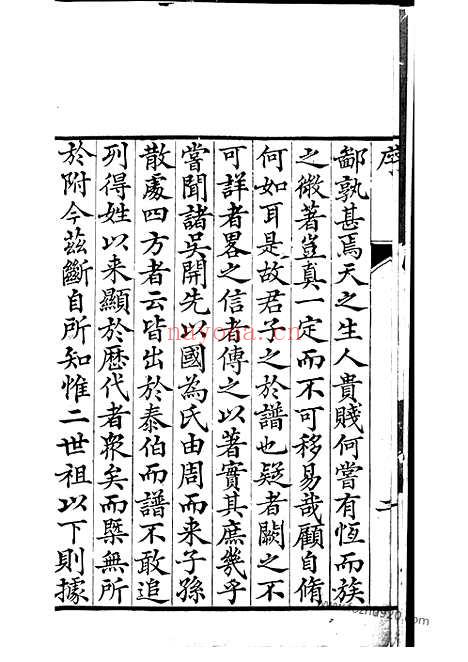 序
二
鄙孰甚焉天之生人貴賤何嘗有恆而族
之微著豈真一定而不可移易哉顧自脩
何如耳是故君子之於譜也疑者闕之不
可詳者畧之信者傳之以著實其庶幾乎
嘗聞諸吳開先以國為氏由周而来子孫
散處四方者云皆出於泰伯而譜不敢追
列得姓以来顯於歴代者衆矣而槩無所
於附今茲斷自所知惟二世祖以下則據
nayona.cn